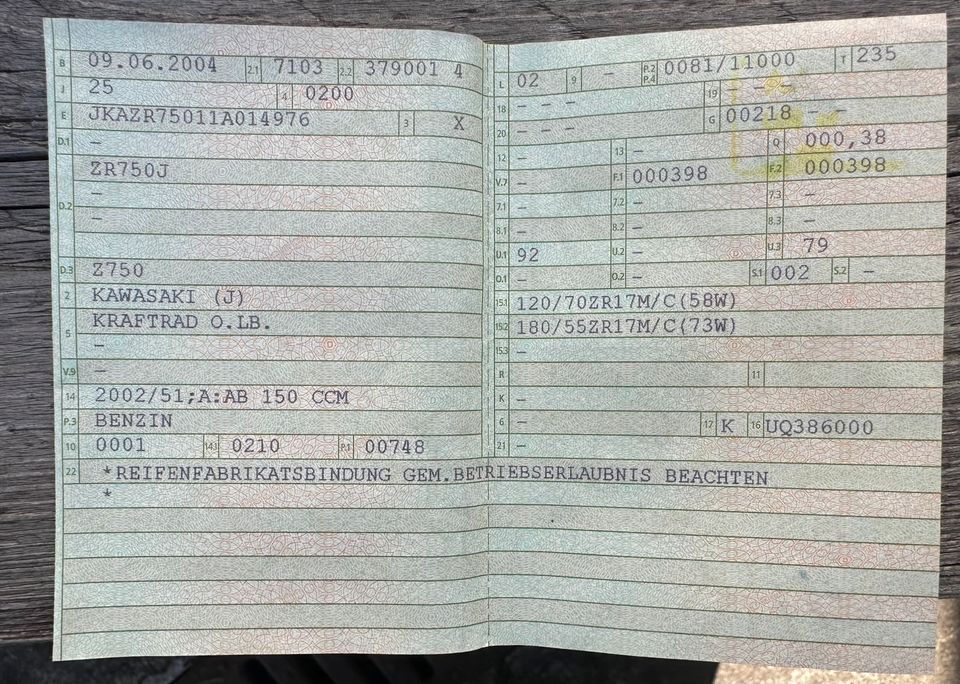 B 09.06.2004 2.1 7103 2.2 379001 4
J 25 4 0200
E JKAZR75011A014976 3 X
D.1 –
ZR750J
–
D.2 –
D.3 Z750
2 KAWASAKI (J)
5 KRAFTRAD O.LB.
–
V.9 –
14 2002/51;A:AB 150 CCM
P.3 BENZIN
10 0001 14.1 0210 P.1 00748
L 02 9 – P.2 P.4 0081/11000 T 235
18 – – – 19 – –
20 – – – G 00218 – –
12 – 13 – Q 000,38
V.7 – F.1 000398 F.2 000398
7.1 – 7.2 – 7.3 –
8.1 – 8.2 – 8.3 –
U.1 92 U.2 – U.3 79
O.1 – O.2 – S.1 002 S.2 –
15.1 120/70ZR17M/C(58W)
15.2 180/55ZR17M/C(73W)
15.3 –
R 11
K –
6 – 17 K 16 UQ386000
21 –
22 *REIFENFABRIKATSBINDUNG GEM.BETRIEBSERLAUBNIS BEACHTEN
*